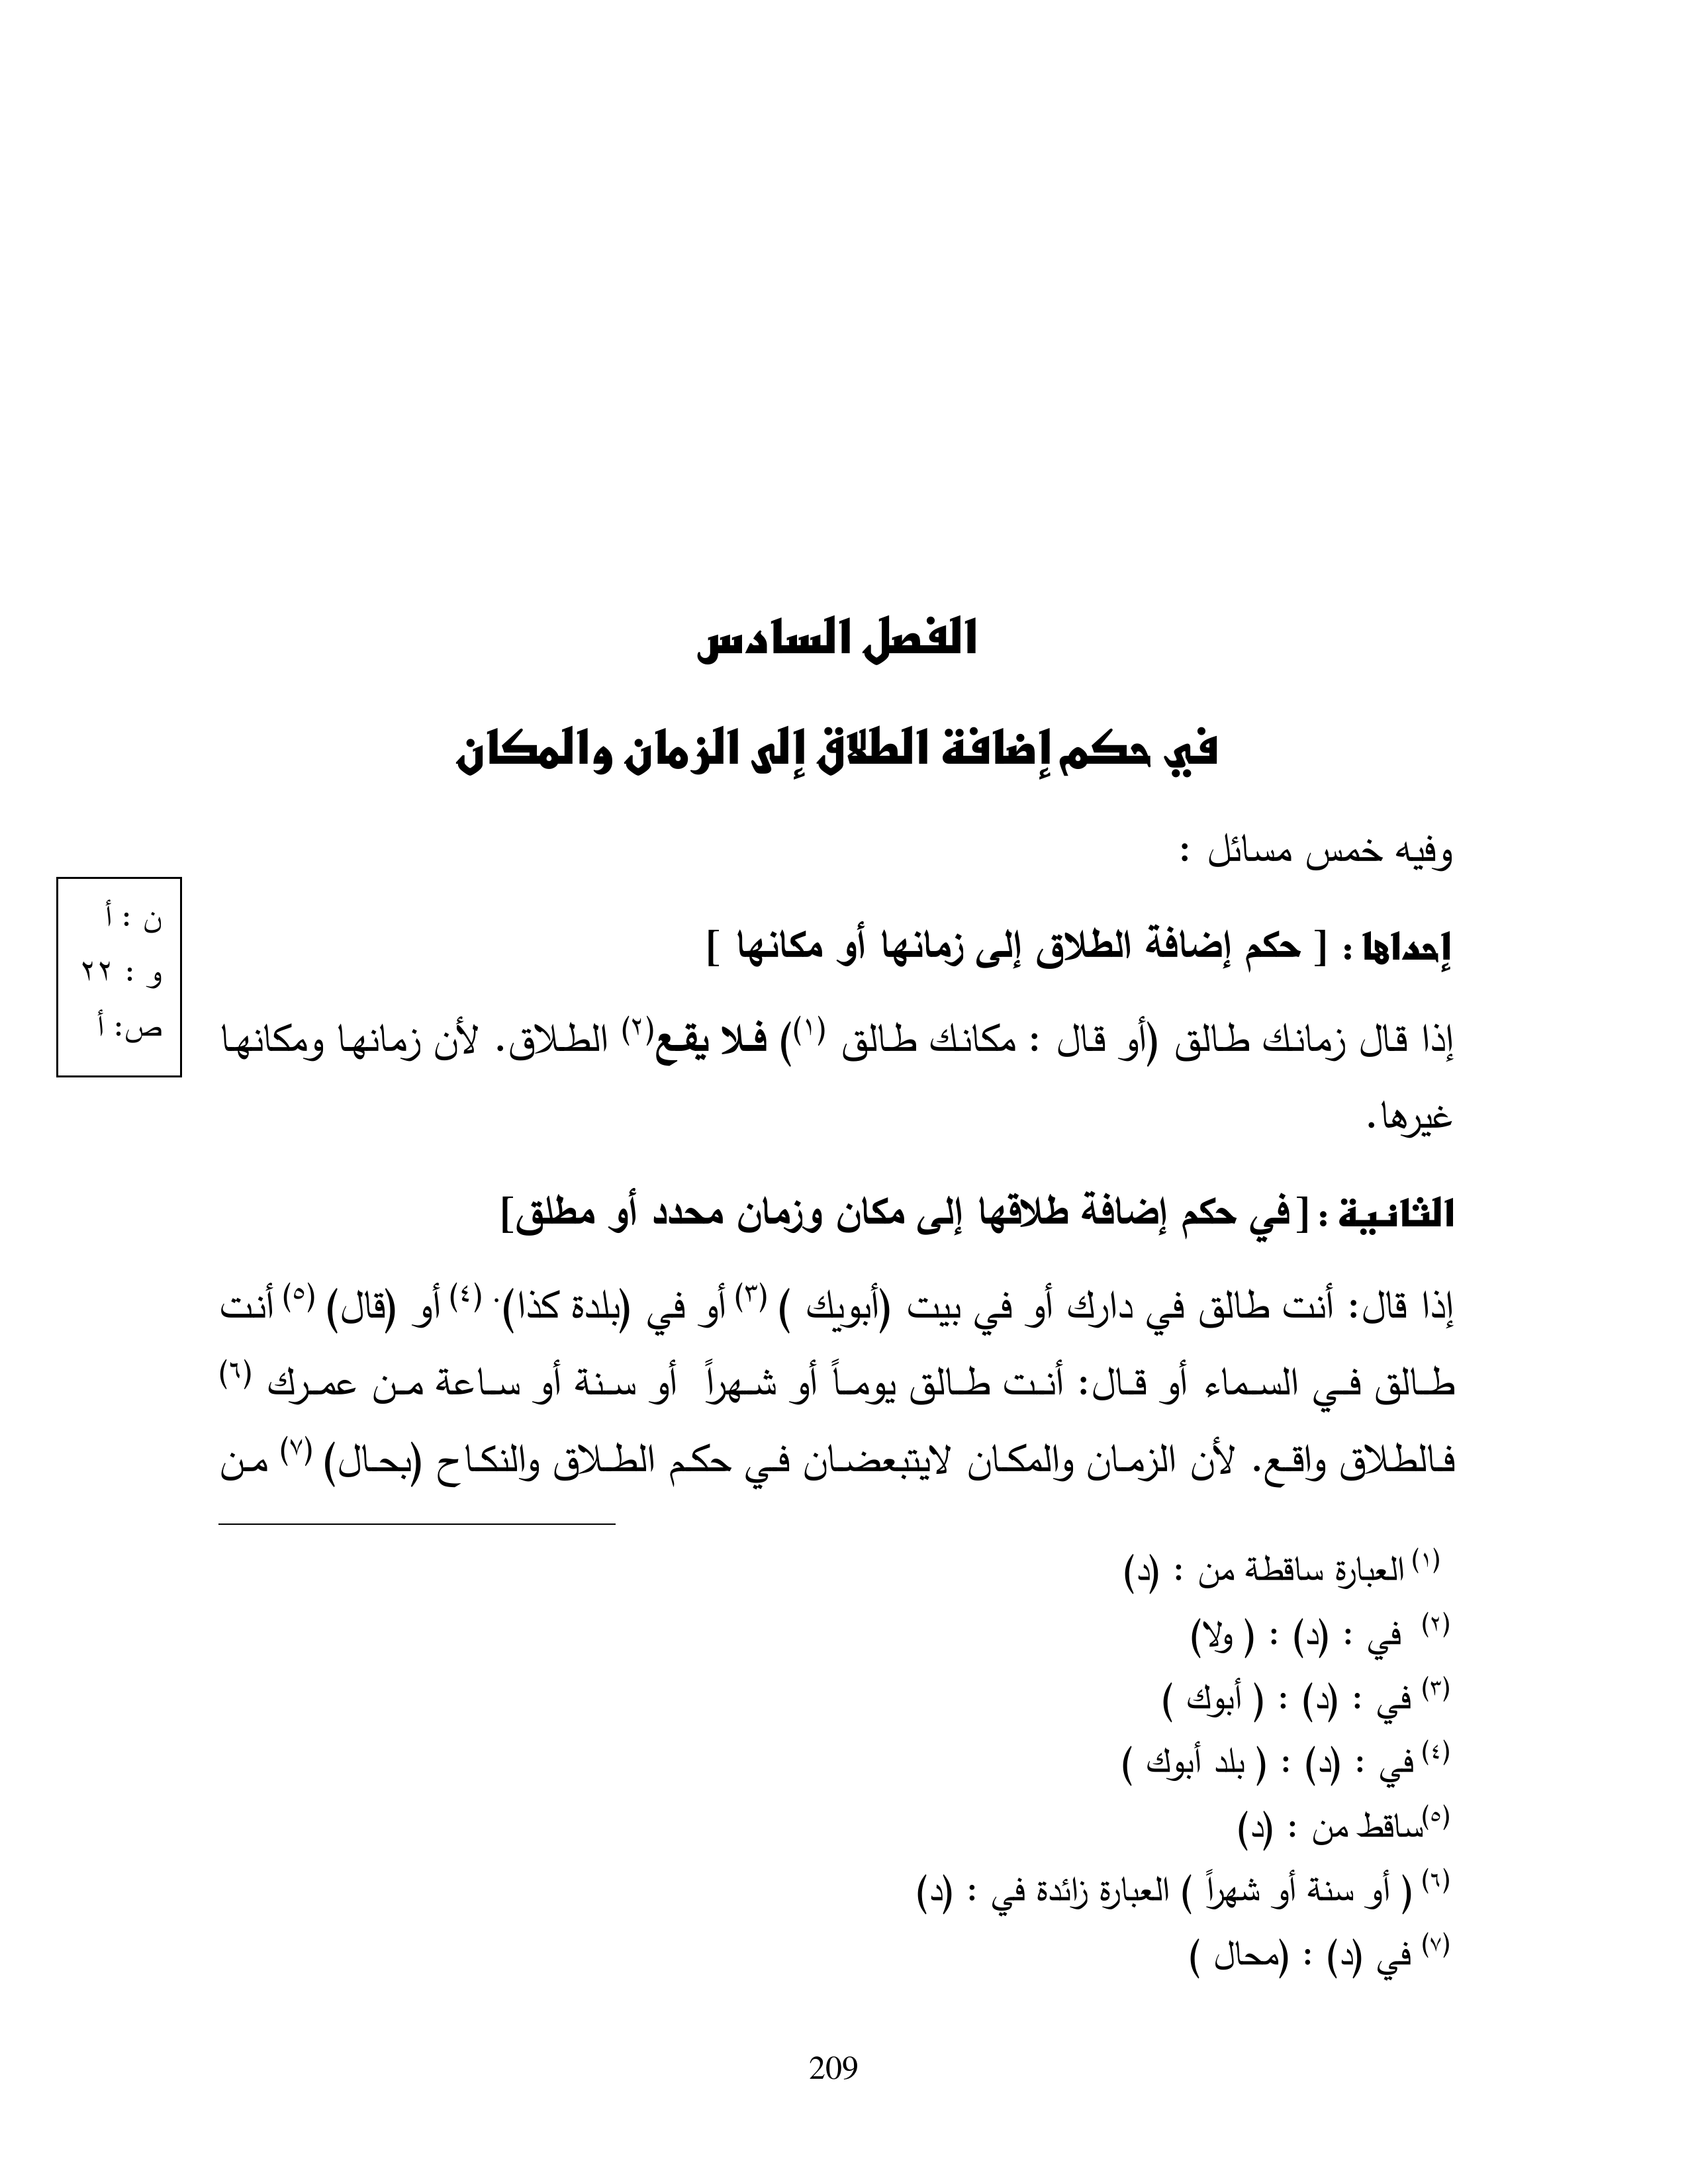 الفصل السادس
في حكم إضافة الطلاق إلى الزمان والمكان
وفيه خمس مسائل :
إحداها : [ حكم إضافة الطلاق إلى زمانها أو مكانها ]
إذا قال زمانك طالق (أو قال : مكانك طالق (١)) فلا يقع(٢) الطلاق. لأن زمانها ومكانها
غيرها.
ن : أ
و : ٢٢
ص: أ
الثانية : [ في حكم إضافة طلاقها إلى مكان وزمان محدد أو مطلق]
إذا قال: أنت طالق في دارك أو في بيت (أبويك ) (٣) أو في (بلدة كذا). (٤) أو (قال) (٥) أنت
طالق في السماء أو قال: أنت طالق يوماً أو شهراً أو سنة أو ساعة من عمرك (٦)
فالطلاق واقع. لأن الزمان والمكان لايتبعضان في حكم الطلاق والنكاح (بحال) (٧) من
(١) العبارة ساقطة من : (د)
(٢) في : (د) : ( ولا)
(٣) في : (د) : ( أبوك )
(٤) في : (د) : ( بلد أبوك )
(٥)ساقط من : (د)
(٦) ( أو سنة أو شهراً ) العبارة زائدة في : (د)
(٧) في (د) : (محال )
209